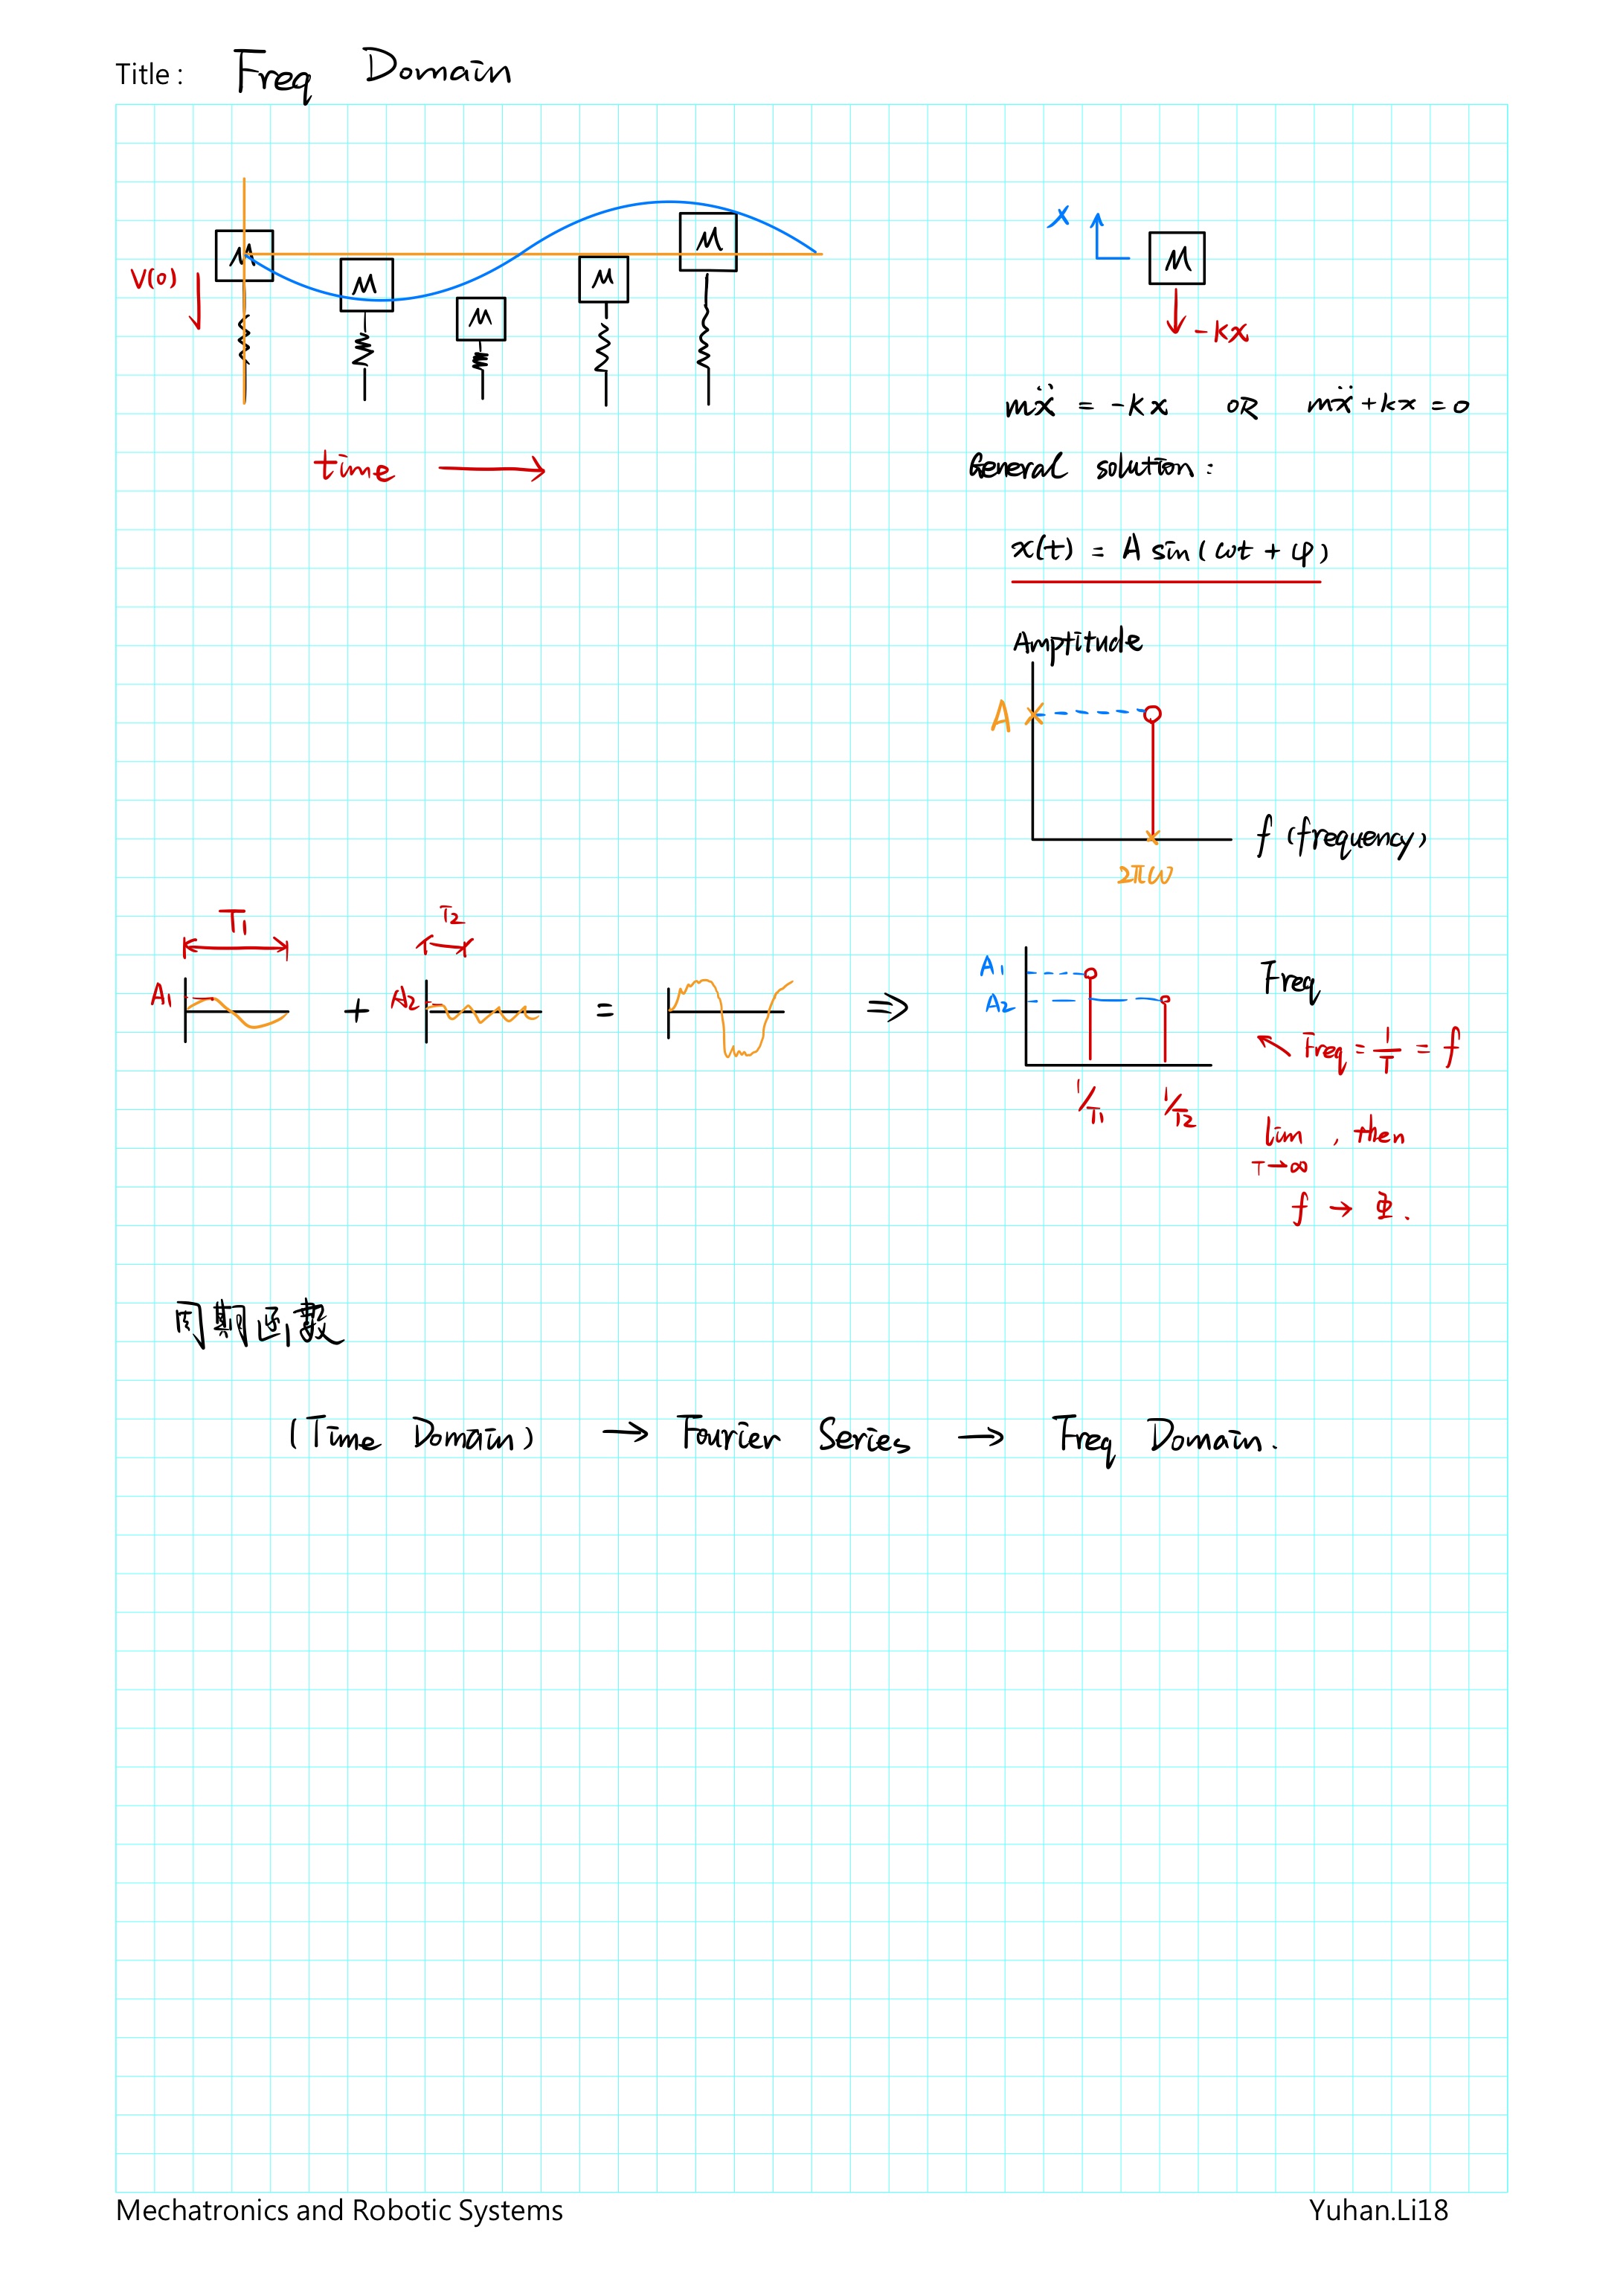 Title : Freq Domain
M M M M M
V(0)
time
x
M
-kx
mẍ = -kx OR mẍ+kx = 0
General solution :
x(t) = A sin(ωt + φ)
Amptitude
A
f (frequency)
2πω
T1
A1
+
T2
A2
=
⇒
A1
A2
1/T1 1/T2
Freq
Freq = 1/T = f
lim , then
T→∞
f → Φ.
周期函數
(Time Domain) → Fourier Series → Freq Domain.
Mechatronics and Robotic Systems
Yuhan.Li18